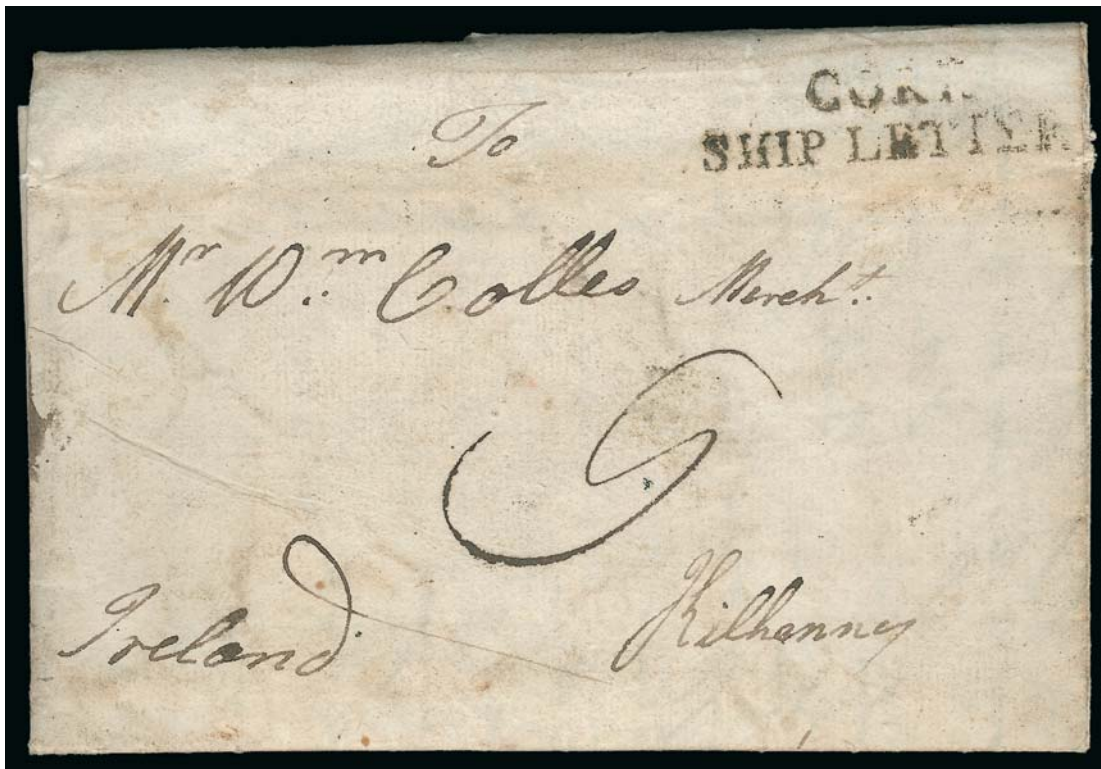 CORK
SHIP LETTER
To
Mr. Wm. Colles Mercht.
Ireland
Kilkenny